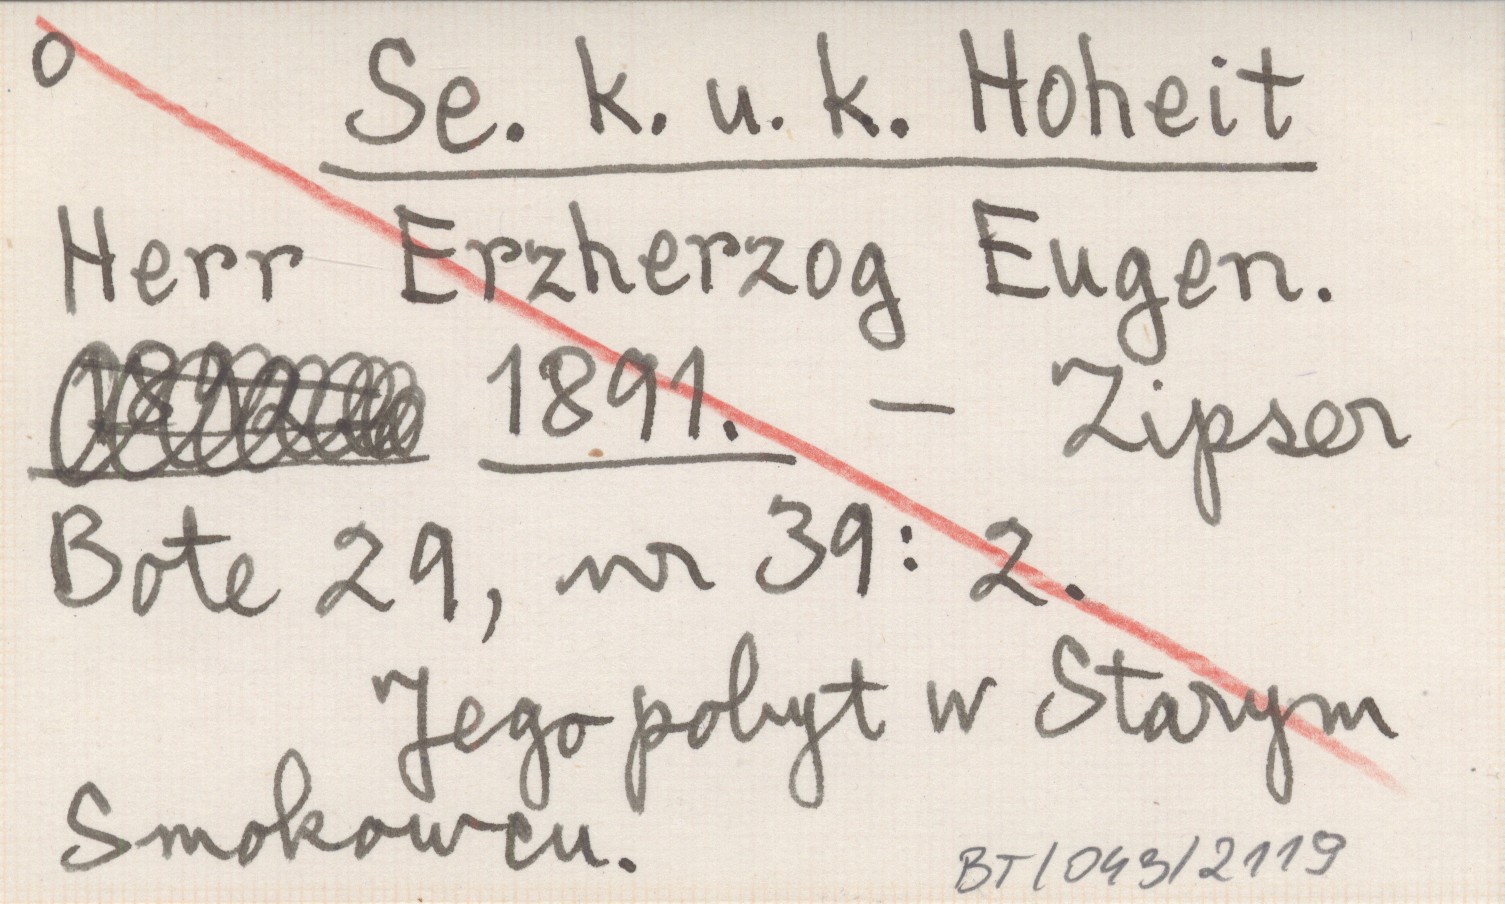 o Se. k. u. k. Hoheit
Herr Erzherzog Eugen.
1891. – Zipser
Bote 29, nr 39: 2.
Jego pobyt w Starym
Smokowcu.
BT/043/2119